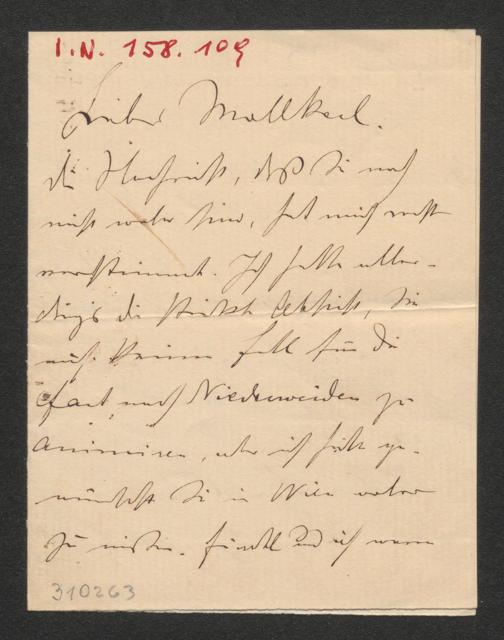 I.N. 158.109
Lieber Mallkzel.
die Nachricht, daß Sie noch
nicht wohler sind, hat mich recht
verstimmt. Ich hatte aller-
dings die Absicht, Sie
auf keinen Fall für die
Fart nach Niederweiden zu
animiren, aber ich hätte ge-
wünscht Sie in Wien wohler
zu wissen. und ich waren
310263